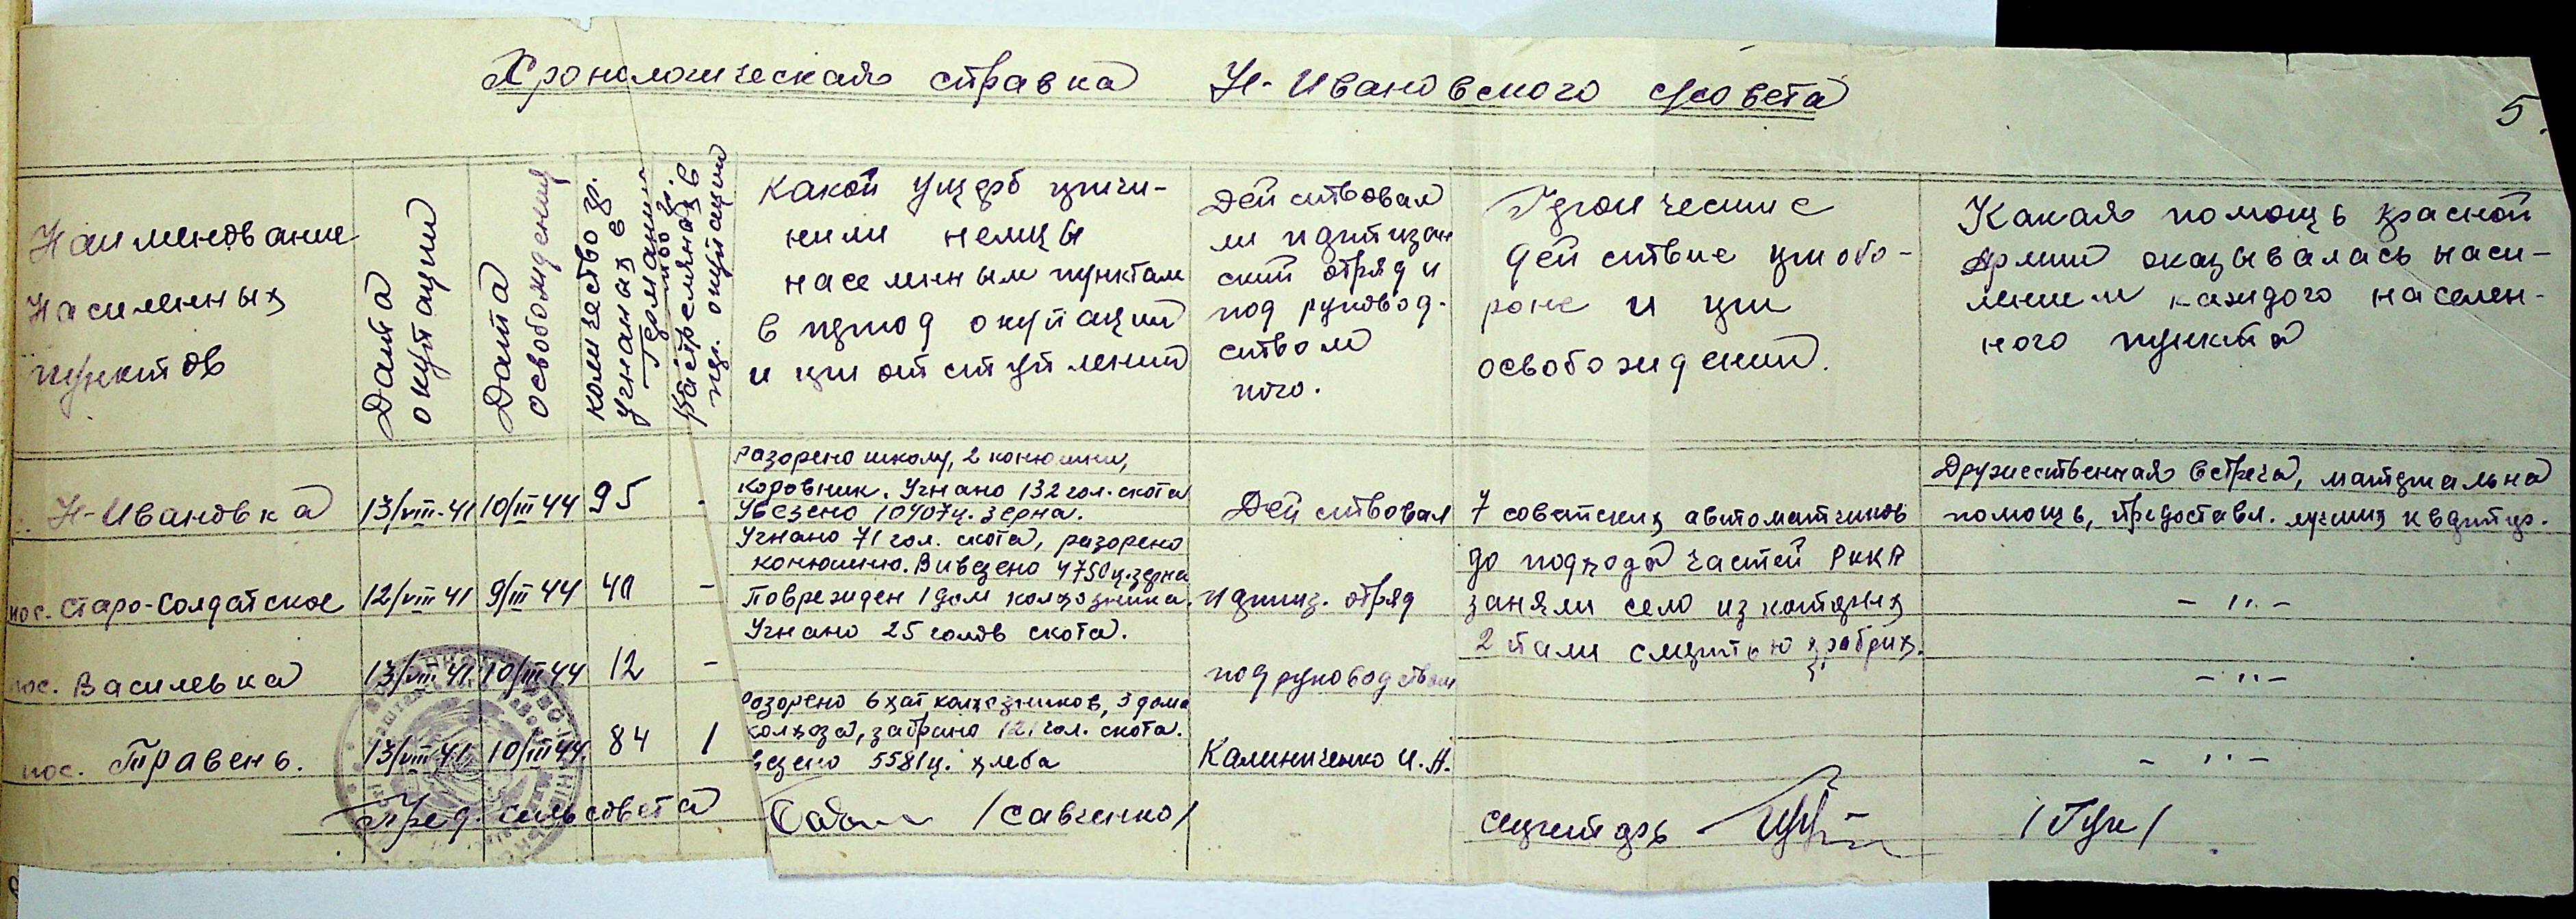 Хронологическая справка Н-Ивановского с/совета
5.
Наименование
населенных
пунктов
Дата
окупации
Дата
освобождения
количество гр.
угнаных в
Германию
Количество гр.
растреляных в
пер. окупации
Какой ущерб причи-
нили немцы
населенным пунктам
в период окупации
и при отступлении
Действовал
ли партизан
ский отряд и
под руковод-
ством
кого.
Героические
действие при обо-
роне и при
освобождении.
Какая помощь красной
армии оказывалась насе-
лением каждого населен-
ного пункта
с. Н-Ивановка
13/VIII-41
10/III 44
95
-
разорено школу, 2 конюшни,
коровник. Угнано 132 гол. скота
Увезено 10407ц. зерна.
Действовал
7 советских автоматчиков
Дружественная встреча, материальна
помощь, предоставл. лучших квартир.
пос. Старо-Солдатское
12/VIII 41
9/III 44
40
-
Угнано 71 гол. скота, разорено
конюшню. Вивезено 4750ц. зерна
Поврежден 1 дом колхозника.
партиз. отряд
до подхода частей РККА
заняли село из которых
- " -
пос. Василевка
13/VIII 41
10/III 44
12
-
Угнано 25 голов скота.
под руководством
2 пали смертью храбрих.
- " -
пос. Травень.
13/VIII 41
10/III 44.
84
1
Разорено 6 хат колхозников, 3 дома
колхоза, забрано 121 гол. скота.
везено 5581ц. хлеба
Калиниченко И. А.
- " -
Пред. сельсовета /Савченко/
секретарь /Гун/